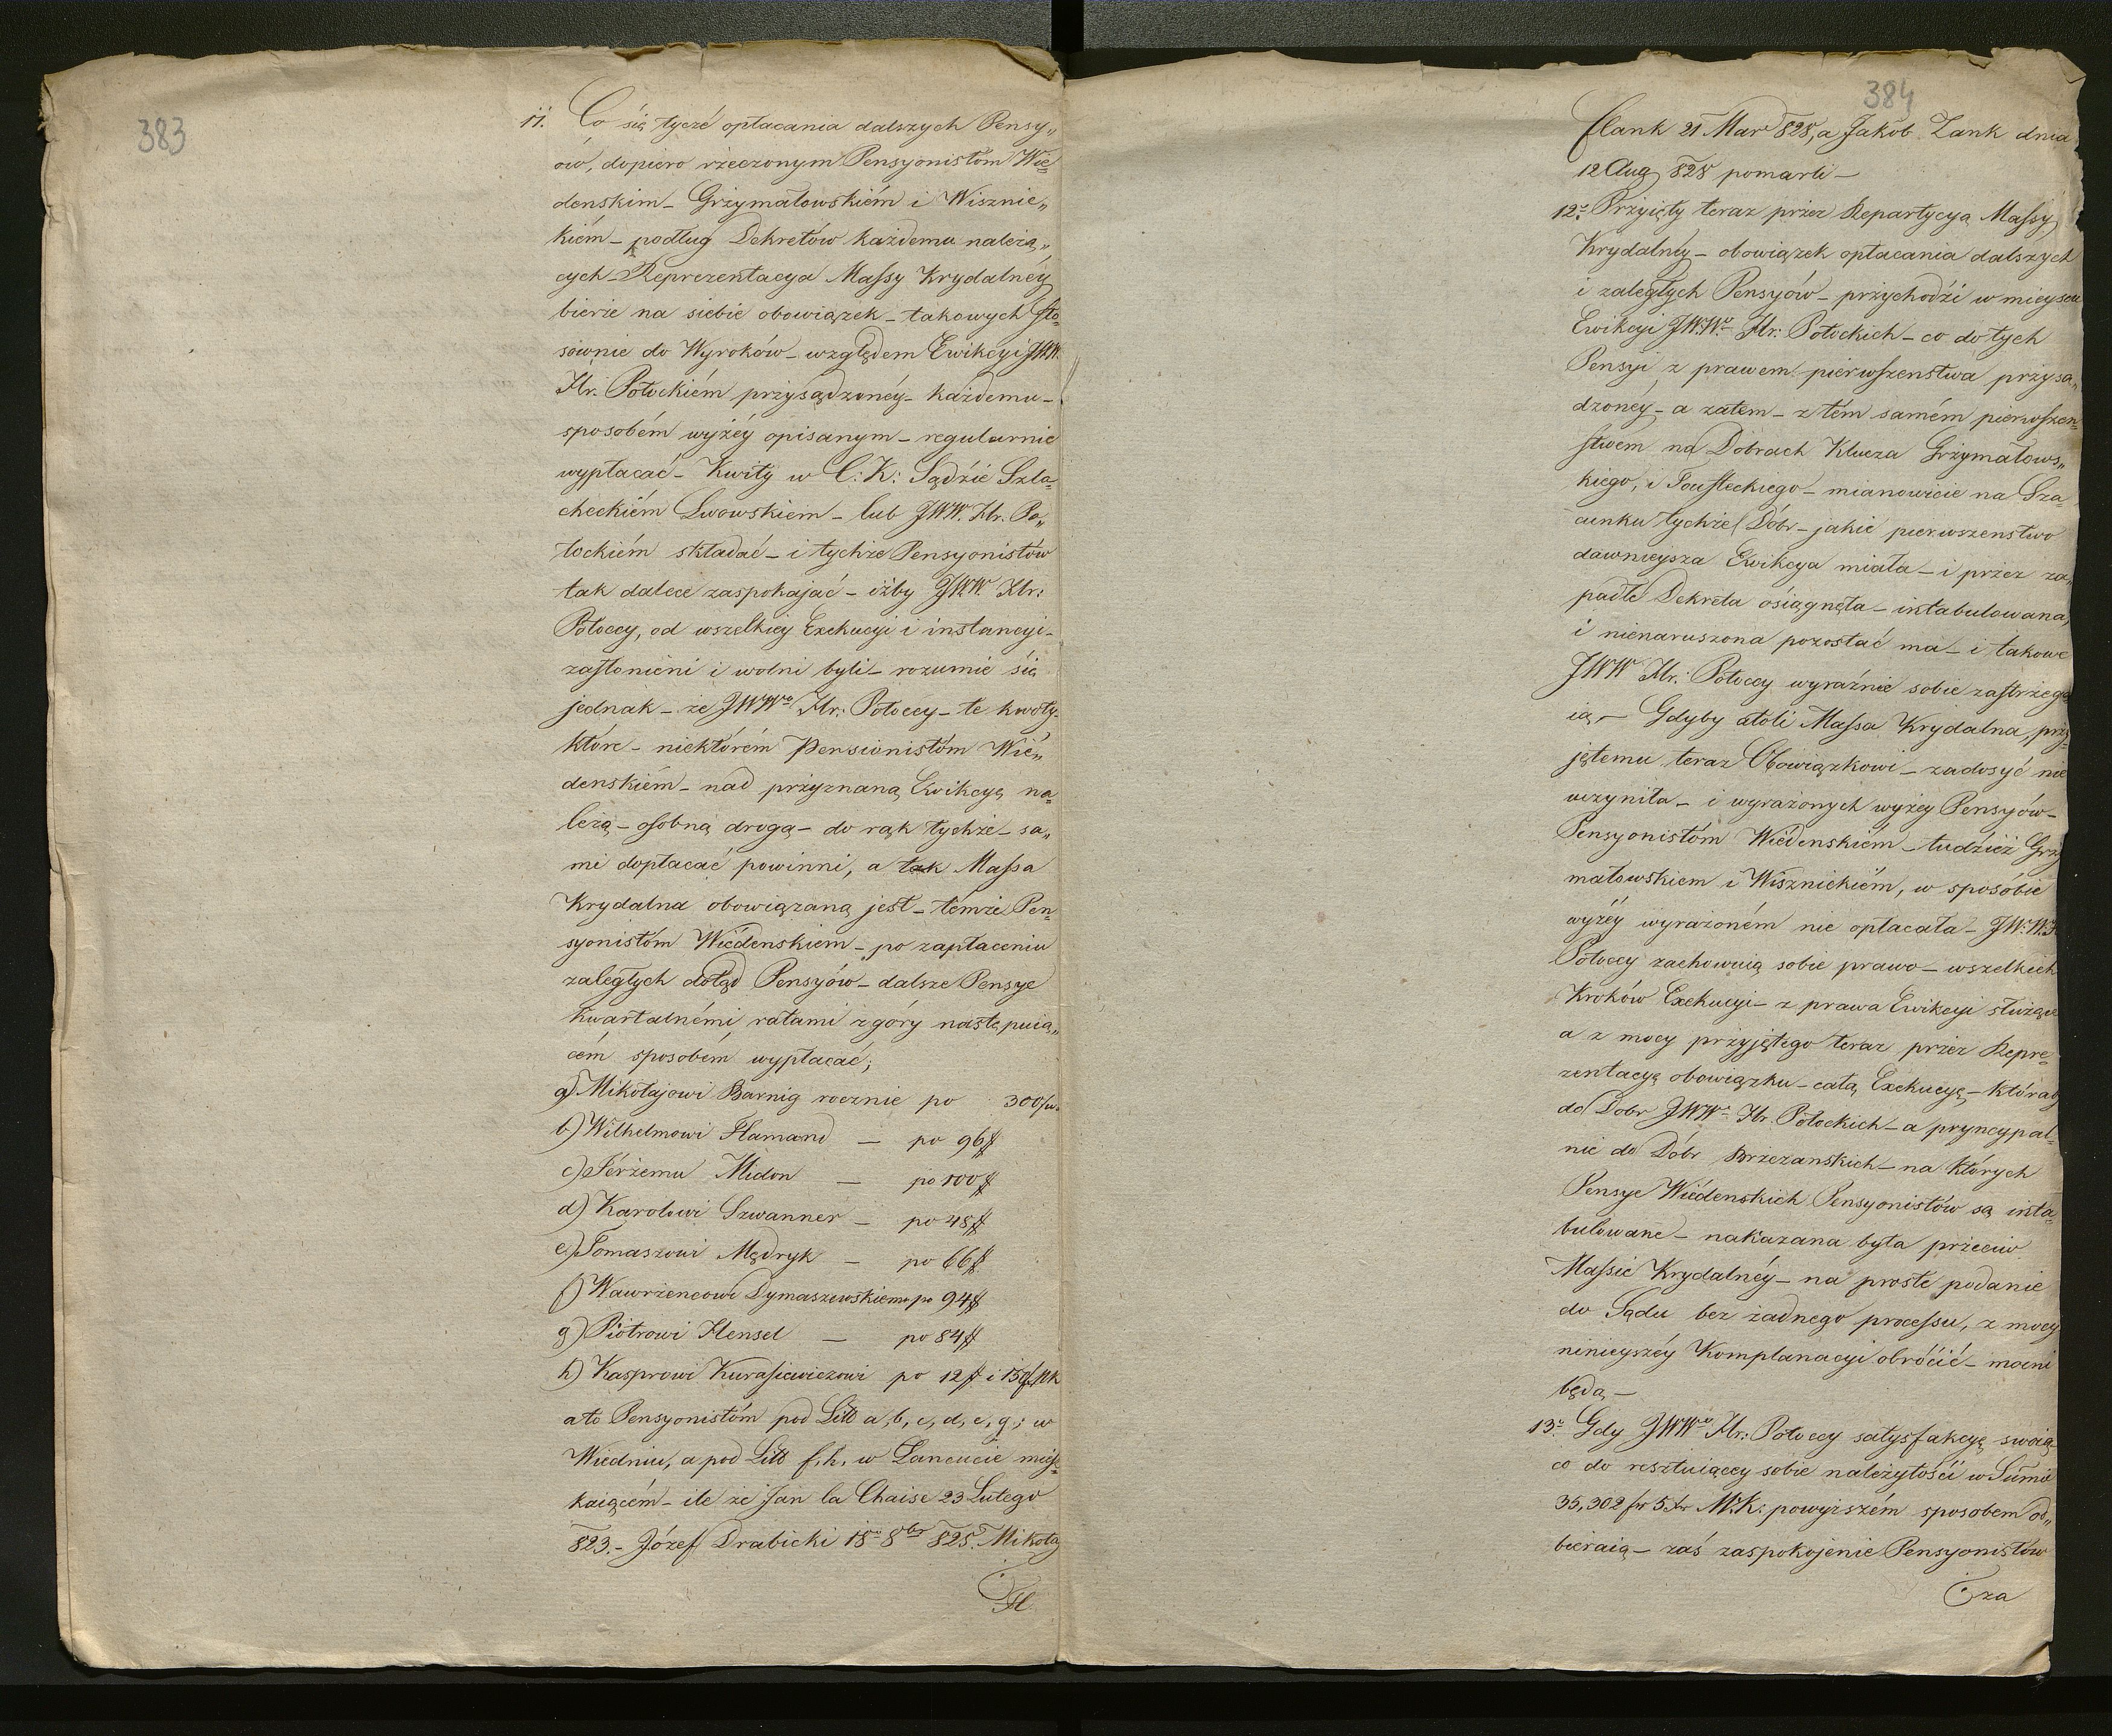 383
11. Co się tyczé opłacania dalszych Pensy„
ów, dopiero rzeczonym Pensyonistom Wie„
denskim – Grzymałowskiém i Wisznie„
kiém – podług Dekretów każdemu należą„
cych – Reprezentacya Massy Krydalnéy
bierze na siebie obowiązek – takowych sto„
sownie do Wyroków – względem Ewikcyi JWW.
Hr. Potockiém przysądzonéy – każdemu –
sposobém wyżéy opisanym – regularnie
wypłacać – Kwity w C: K: Sądzie Szla„
checkiém Lwowskiem – lub JWW. Hr. Po„
tockiém składać – i tychże Pensyonistów
tak dalece zaspokajać – iżby JWW. Hr:
Potoccy, od wszelkiey Exekucyi i instancyi –
zasłonieni i wolni byli – rozumie się
jednak – że JWWni Hr: Potoccy – te kwoty –
które – niektórém Pensionistóm Wie„
denskiém – nad przyznaną Ewikcyą na„
leżą – osobną drogą – do rąk tychże – sa„
mi dopłacać powinni, a tak Massa
Krydalna obowiązaną jest – témże Pen„
syonistóm Wiedenskiem – po zapłaceniu
zaległych dotąd Pensyów – dalsze Pensye
kwartalnémi ratami zgóry następuią„
cém sposobém wypłacać;
a) Mikołajowi Barnig rocznie po 300 fr.
b) Wilhelmowi Hamand — po 96 ff
c) Jérzemu Midon — po 100 ff
d) Karolowi Szwanner — po 48 ff
e) Tomaszowi Mędryk — po 66 ff
f) Wawrzencowi Dymaszewskiemu po 94 ff
g) Piotrowi Hensel — po 84 ff
h) Kasprowi Kurasiewiczowi po 12 ff i 15
a to Pensyonistóm pod Litt a, b, c, d, e, g; w
Wiedniu, a pod Litt f. h. w Łancucie miesz„
kaiącém – ile że Jan la Chaise 23 Lutego
823. – Józef Drabicki 18 8br 825. Mikołay
Fl
384
Flank 21 Mar 828, a Jakób Zank dnia
12 Aug 828 pomarli —
12o. Przyięty teraz przez Repartycyą Massy
Krydalnéy – obowiązek opłacania dalszych
i zaległych Pensyów – przychodzi w mieyscu
Ewikcyi JWWn Hr: Potockich – co do tych
Pensyi z prawem pierwszenstwa przysą„
dzonéy – a zatem – z tém samém pierwszen„
stwem na Dobrach Klucza Grzymałows„
kiego, i Tousteckiego – mianowicie na Sza„
cunku tychże Dóbr – jakie pierwszenstwo
dawnieysza Ewikcya miała – i przez za„
padłe Dekreta osiągnęła – intabulowana,
i nienaruszona pozostać ma – i takowe
JWW Hr: Potoccy wyraźnie sobie zastrzega
ią — Gdyby atoli Massa Krydalna przy„
jętemu teraz Obowiązkowi – zadosyć nie
uczyniła – i wyrażonych wyżey Pensyów –
Pensyonistóm Wiedenskiém – tudzież Grzy
małowskiem i Wisznickiém, w sposóbie
wyżéy wyrażoném nie opłacała – JW: W: H
Potoccy zachowuią sobie prawo – wszelkich
Kroków Exekucyi – z prawa Ewikcyi służące
a z mocy przyjętego teraz przez Repre„
zentacyę obowiązku – całą Exekucyę – któraby
do Dobr JWWn Hr. Potockich – a pryncypal„
nie do Dóbr Brzezanskich – na których
Pensye Wiedenskich Pensyonistów są inta„
bulowane – nakazana była przeciw
Massie Krydalnéy – na proste podanie
do Sądu bez żadnego processu, z mocy
ninieyszéy Komplanacyi obrócić – mocni
będą —
13o Gdy JWWni Hr: Potoccy satysfakcyę swoią
co do resztuiącey sobie należytości w Sumie
35,302 fr 5 xr M: K: powyższém sposobem od„
bieraią – zaś zaspokojenie Pensyonistów
za